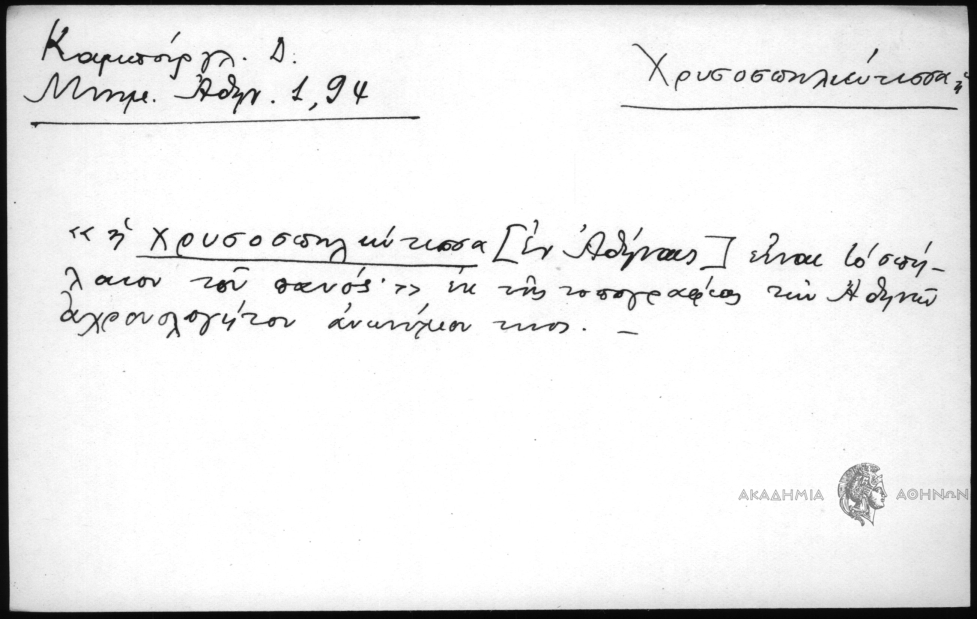 Καμπούργλ. Δ.
Μνημ. Ἀθην. 1, 94
Χρυσοσπηλιώτισσα, ἡ
«ἡ Χρυσοσπηλιώτισσα [ἐν Ἀθήναις] εἶναι τὸ σπή-
λαιον τοῦ πανός·» ἐκ τῆς τοπογραφίας τῶν Ἀθηνῶν
ἀχρονολογήτου ἀνωνύμου τινος. –
ΑΚΑΔΗΜΙΑ ΑΘΗΝΩΝ